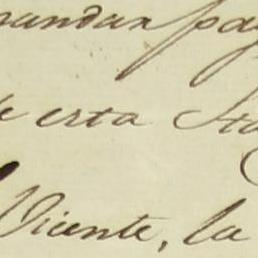 mandar pag
de esta Sta
Vicente, la